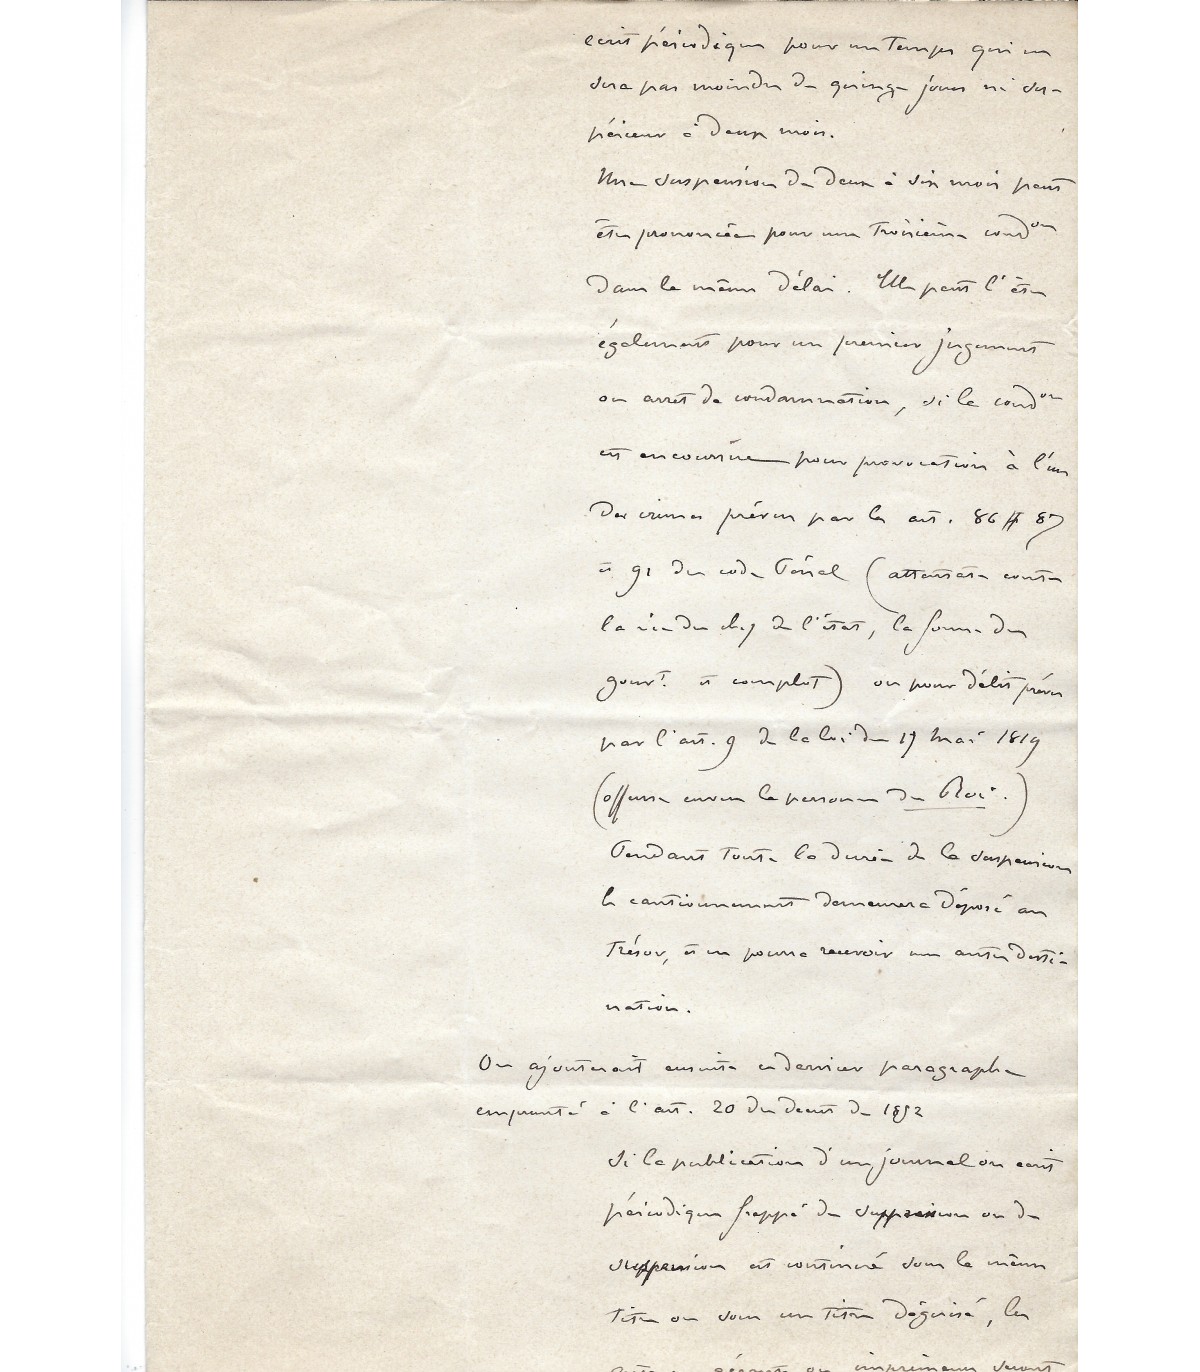 écrit périodique pour un temps qui ne
sera pas moindre de quinze jours ni su-
périeur à deux mois.
Une suspension de deux à six mois peut
être prononcée pour une troisième condon
dans le même délai. Elle peut l'être
également pour un premier jugement
ou arrêt de condamnation, si la condon
est encourue pour provocation à l'un
des crimes prévus par les art. 86 87
et 91 du code Pénal (attentats contre
la vie du chef de l'état, la forme du
gouvt. et complot) ou pour délit prévu
par l'art. 9 de la loi du 17 mai 1819
(offense envers la personne du Roi.)
Pendant toute la durée de la suspension
le cautionnement demeurera déposé au
Trésor, et ne pourra recevoir une autre desti-
nation.
On ajouterait ensuite ce dernier paragraphe
emprunté à l'art. 20 du décret de 1852
Si la publication d'un journal ou écrit
périodique frappé de suppression ou de
suspension est continué sous le même
titre ou sous un titre déguisé, les
gérants ou imprimeurs seront